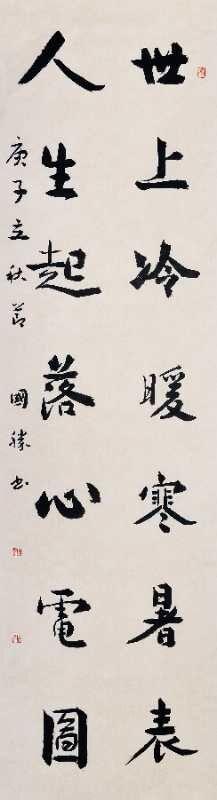 世上冷暖寒暑表
人生起落心電圖
庚子立秋節 國勝書